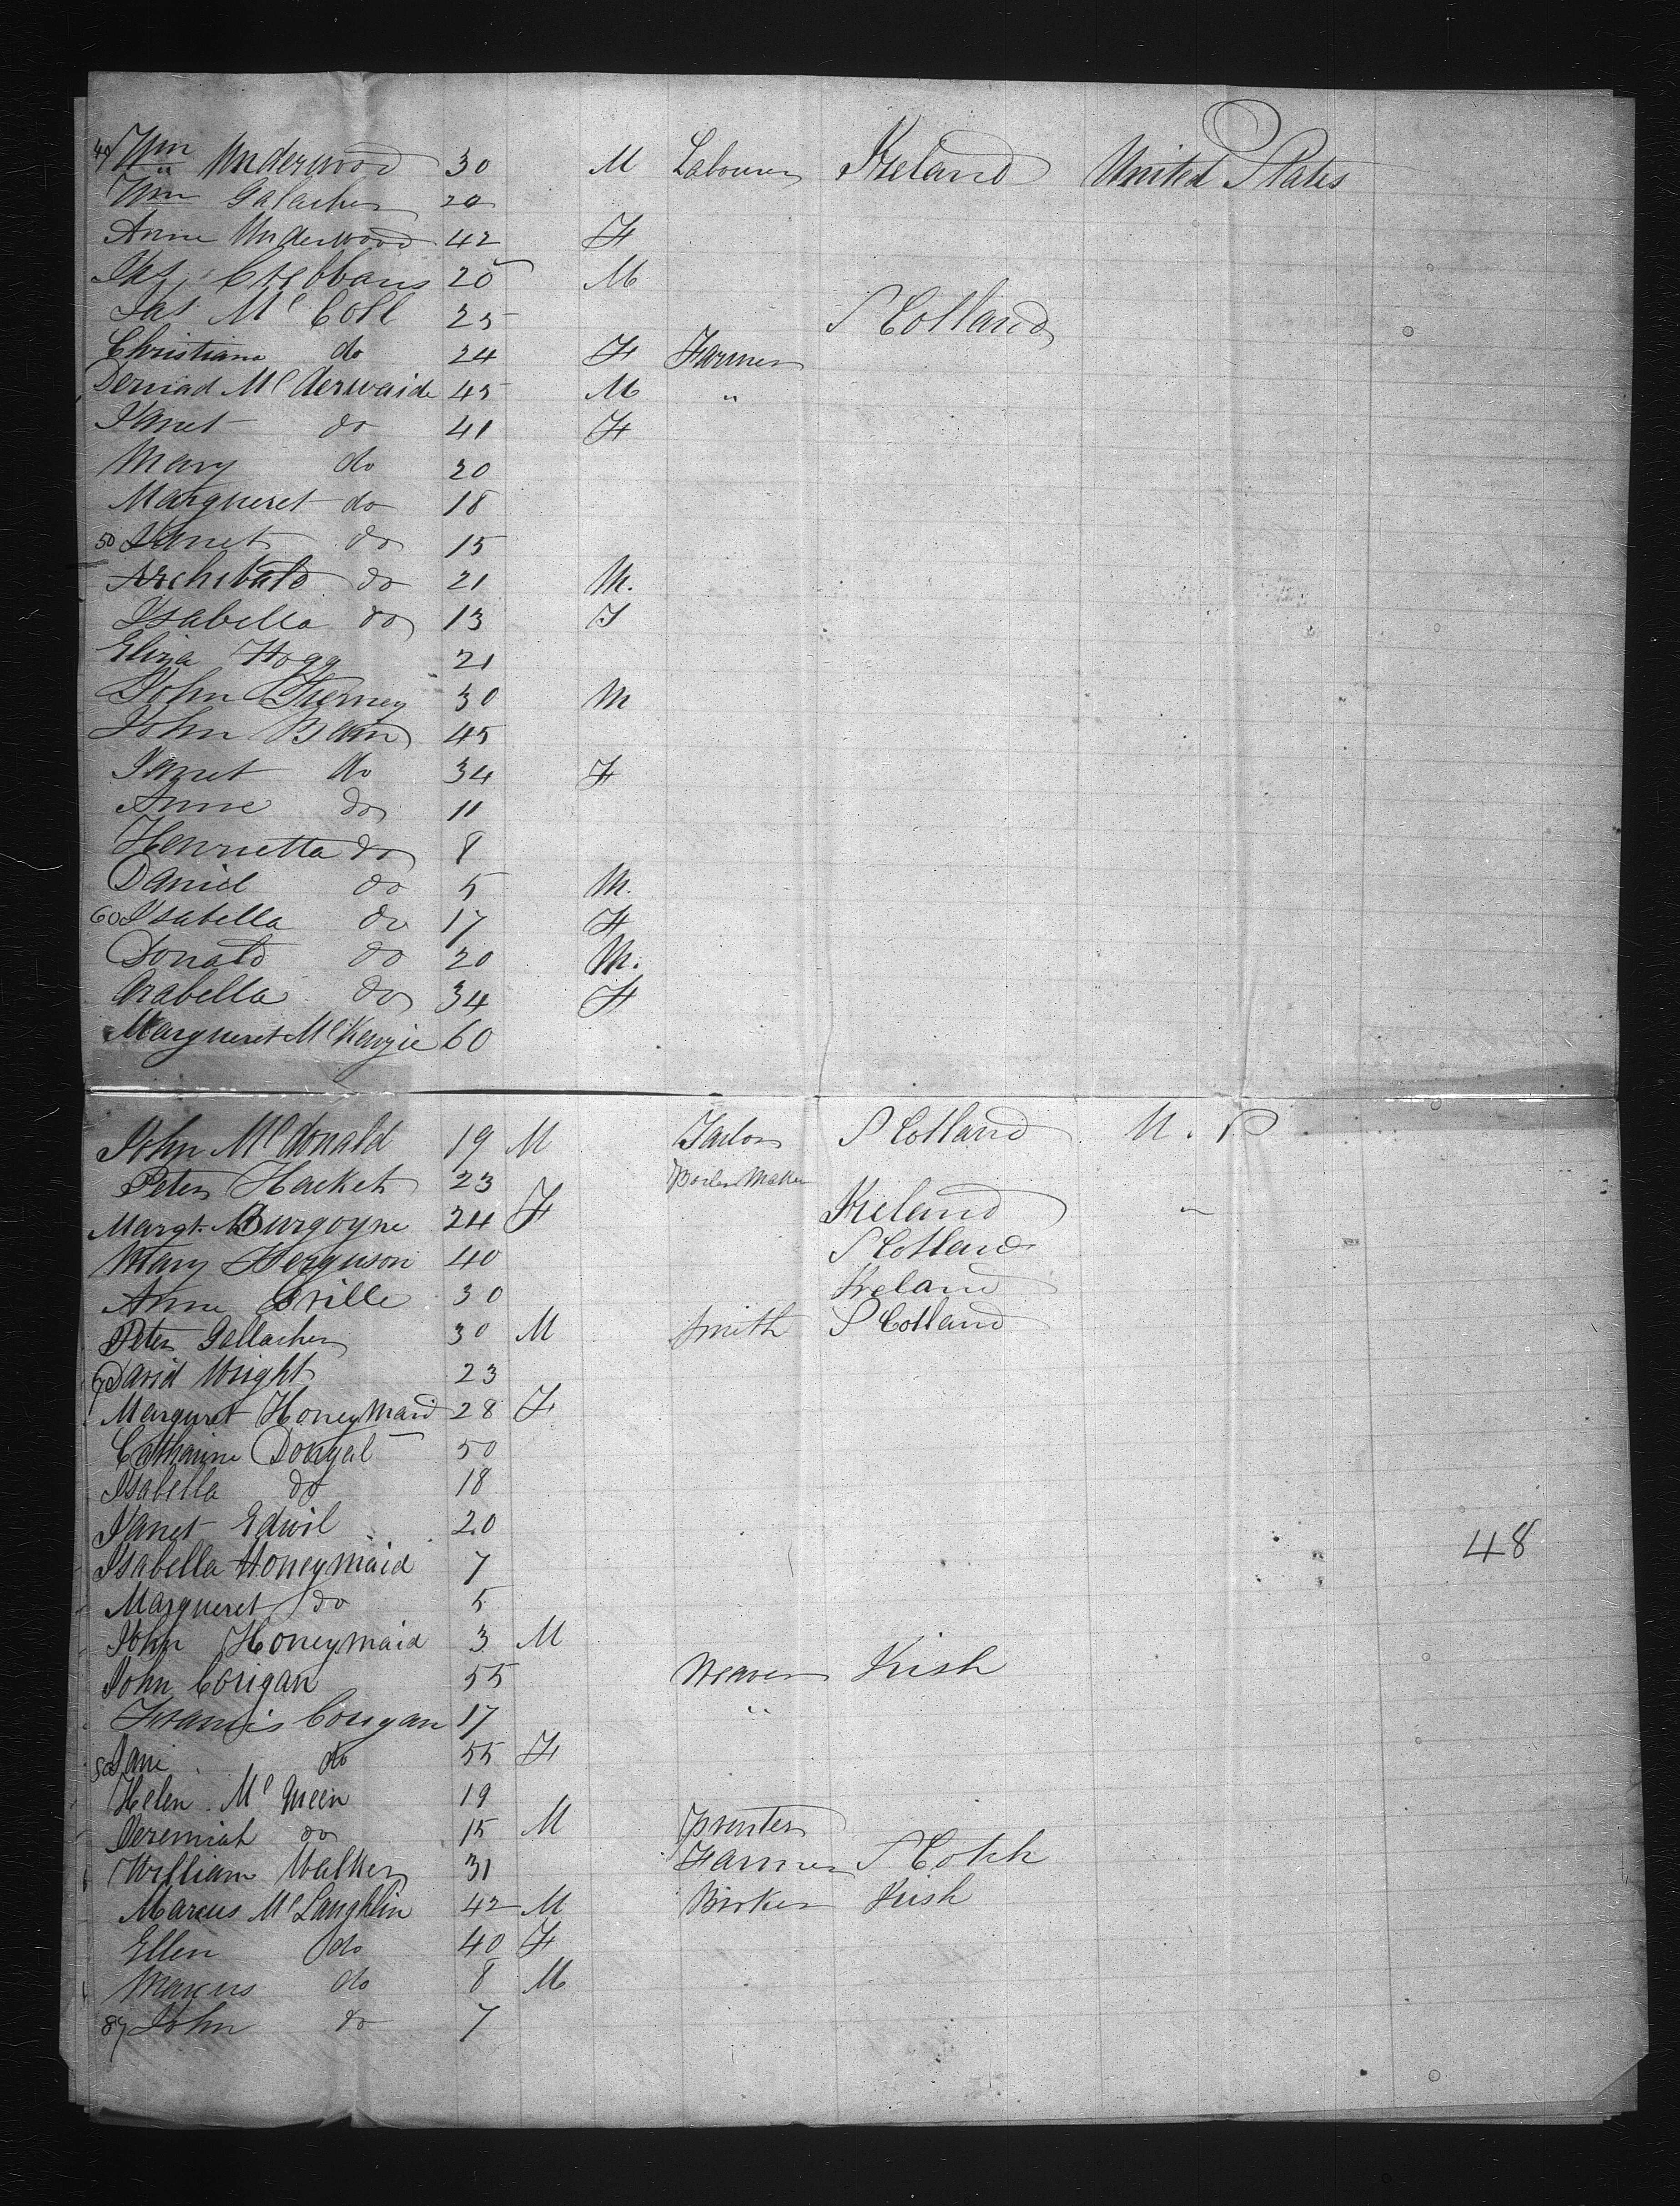 40 Wm Underwood 30 M Labourer Ireland United States
Wm Galacher 20
Anne Underwood 42 F
Jas. Crebbans 20 M
Jas Mc Coll 25 Scotland
Christiana do 24 F Farmer
Mc 45 M "
Janet do 41 F
Mary do 20
Margueret do 18
50 Janet do 15
Archibald do 21 M.
Isabella do 13 F
Eliza Hogg 21
John Tierney 30 M
John Bain 45
Janet do 34 F
Anne do 11
Henrietta do 8
Daniel do 5 M.
60 Isabella do 17 F
Donald do 20 M.
Arabella do 34 F
Margueret McKenzie 60
John McDonald 19 M Tailor Scotland U. S
Peter Hacket 23 Boiler Maker
Margt. Burgoyne 24 F Ireland "
Mary Ferguson 40 Scotland
Anne 30 Ireland
Peter Gallacher 30 M Smith Scotland
70 David Wright 23
Marguret Honeymaid 28 F
Catharine Dougal 50
Isabella do 18
Janet Edwil 20
Isabella Honeymaid 7 48
Margueret do 5
John Honeymaid 3 M
John Corigan 55 Weaver Irish
Francis Corigan 17 "
80 Jane do 55 F
Helen McQueen 19
Jeremiah do 15 M Printer
William Walker 31 Farmer Scotch
Marcus McLaughlin 42 M Broker Irish
Ellen do 40 F
Marcus do 8 M
87 John do 7